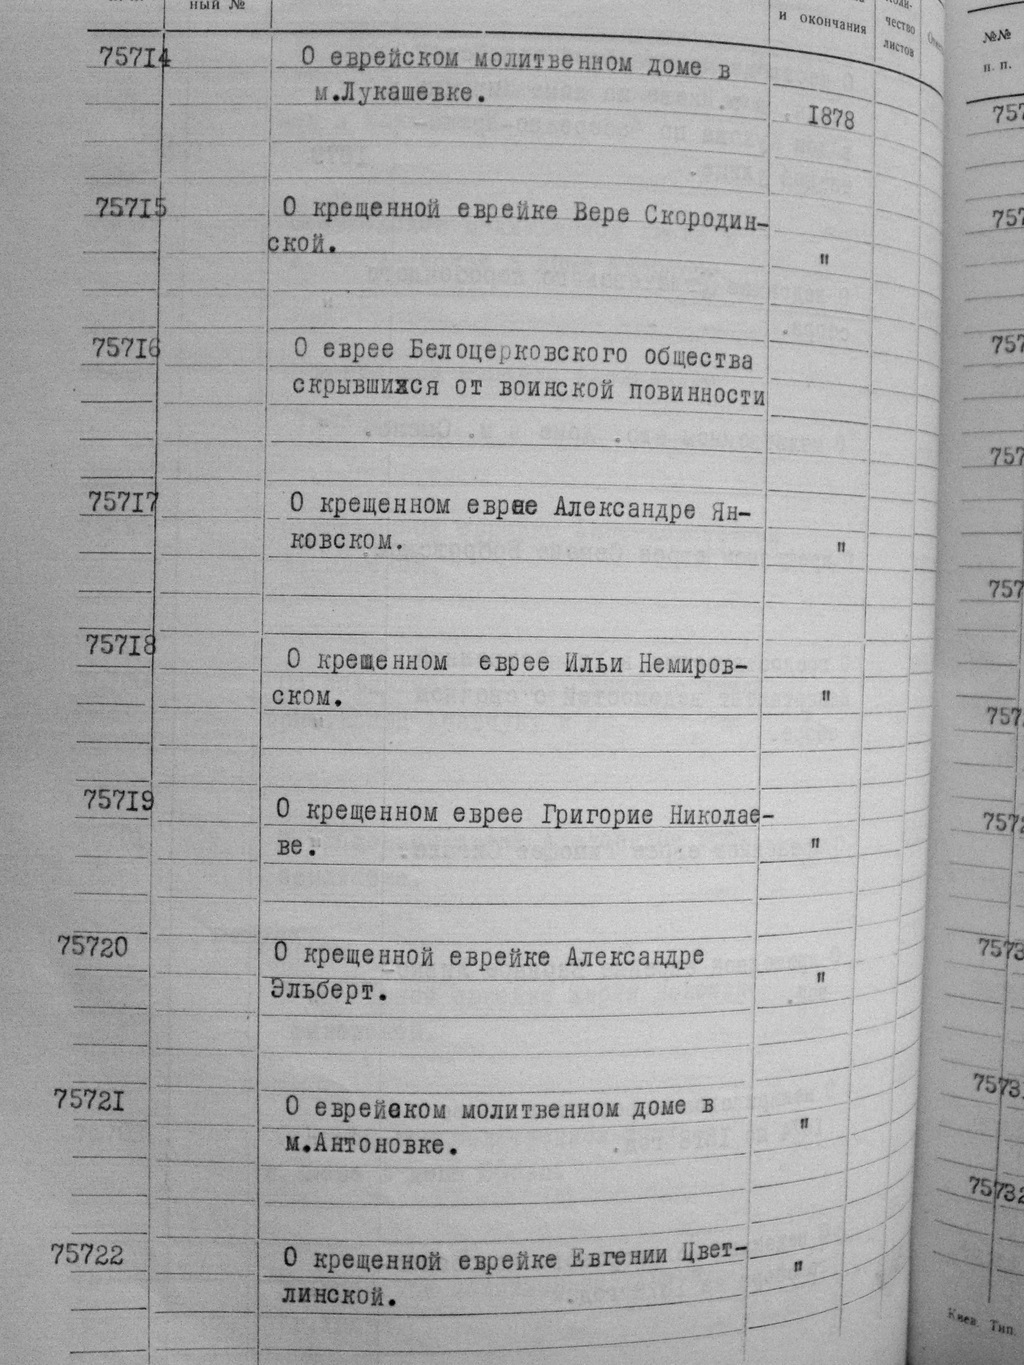 ный №
и окончания
чество
листов
№№
п. п.
75714 О еврейском молитвенном доме в
м.Лукашевке.
1878
75715 О крещенной еврейке Вере Скородин-
ской. "
75716 О еврее Белоцерковского общества
скрывшихся от воинской повинности
75717 О крещенном еврее Александре Ян-
ковском. "
75718 О крещенном еврее Ильи Немиров-
ском. "
75719 О крещенном еврее Григорие Николае-
ве. "
75720 О крещенной еврейке Александре
Эльберт. "
75721 О еврейском молитвенном доме в
м.Антоновке. "
75722 О крещенной еврейке Евгении Цвет-
линской. "
75732
Киев. Тип.